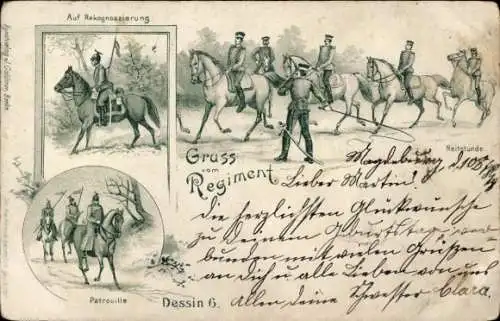 Auf Rekognoszierung
Reitstunde.
Gruss
vom
Regiment
Patrouille
Dessin 6.
Magdeburg, d.
Lieber Martin!
die herzlichsten Glückwünsche
zu Deinem Geburtstag ver
bunden mit vielen Grüßen
an dich u alle Lieben von uns
Allen deine Schwester Clara.